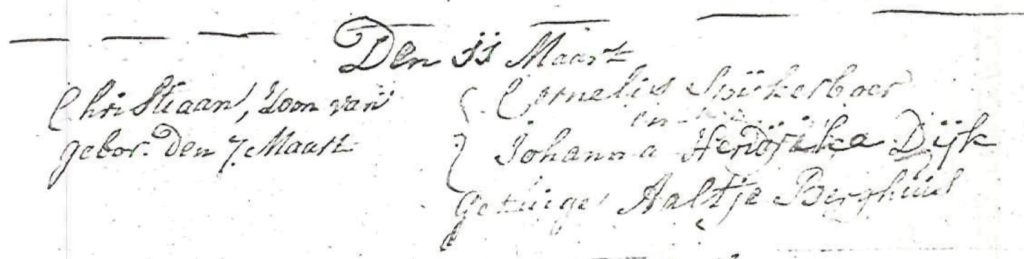 Den 11 Maart
Christiaan, Zoon van
gebor. den 7. Maart
Cornelis Suikerboer
en
Johanna Hendrika Dijk
Getuige Aaltje Berghuis